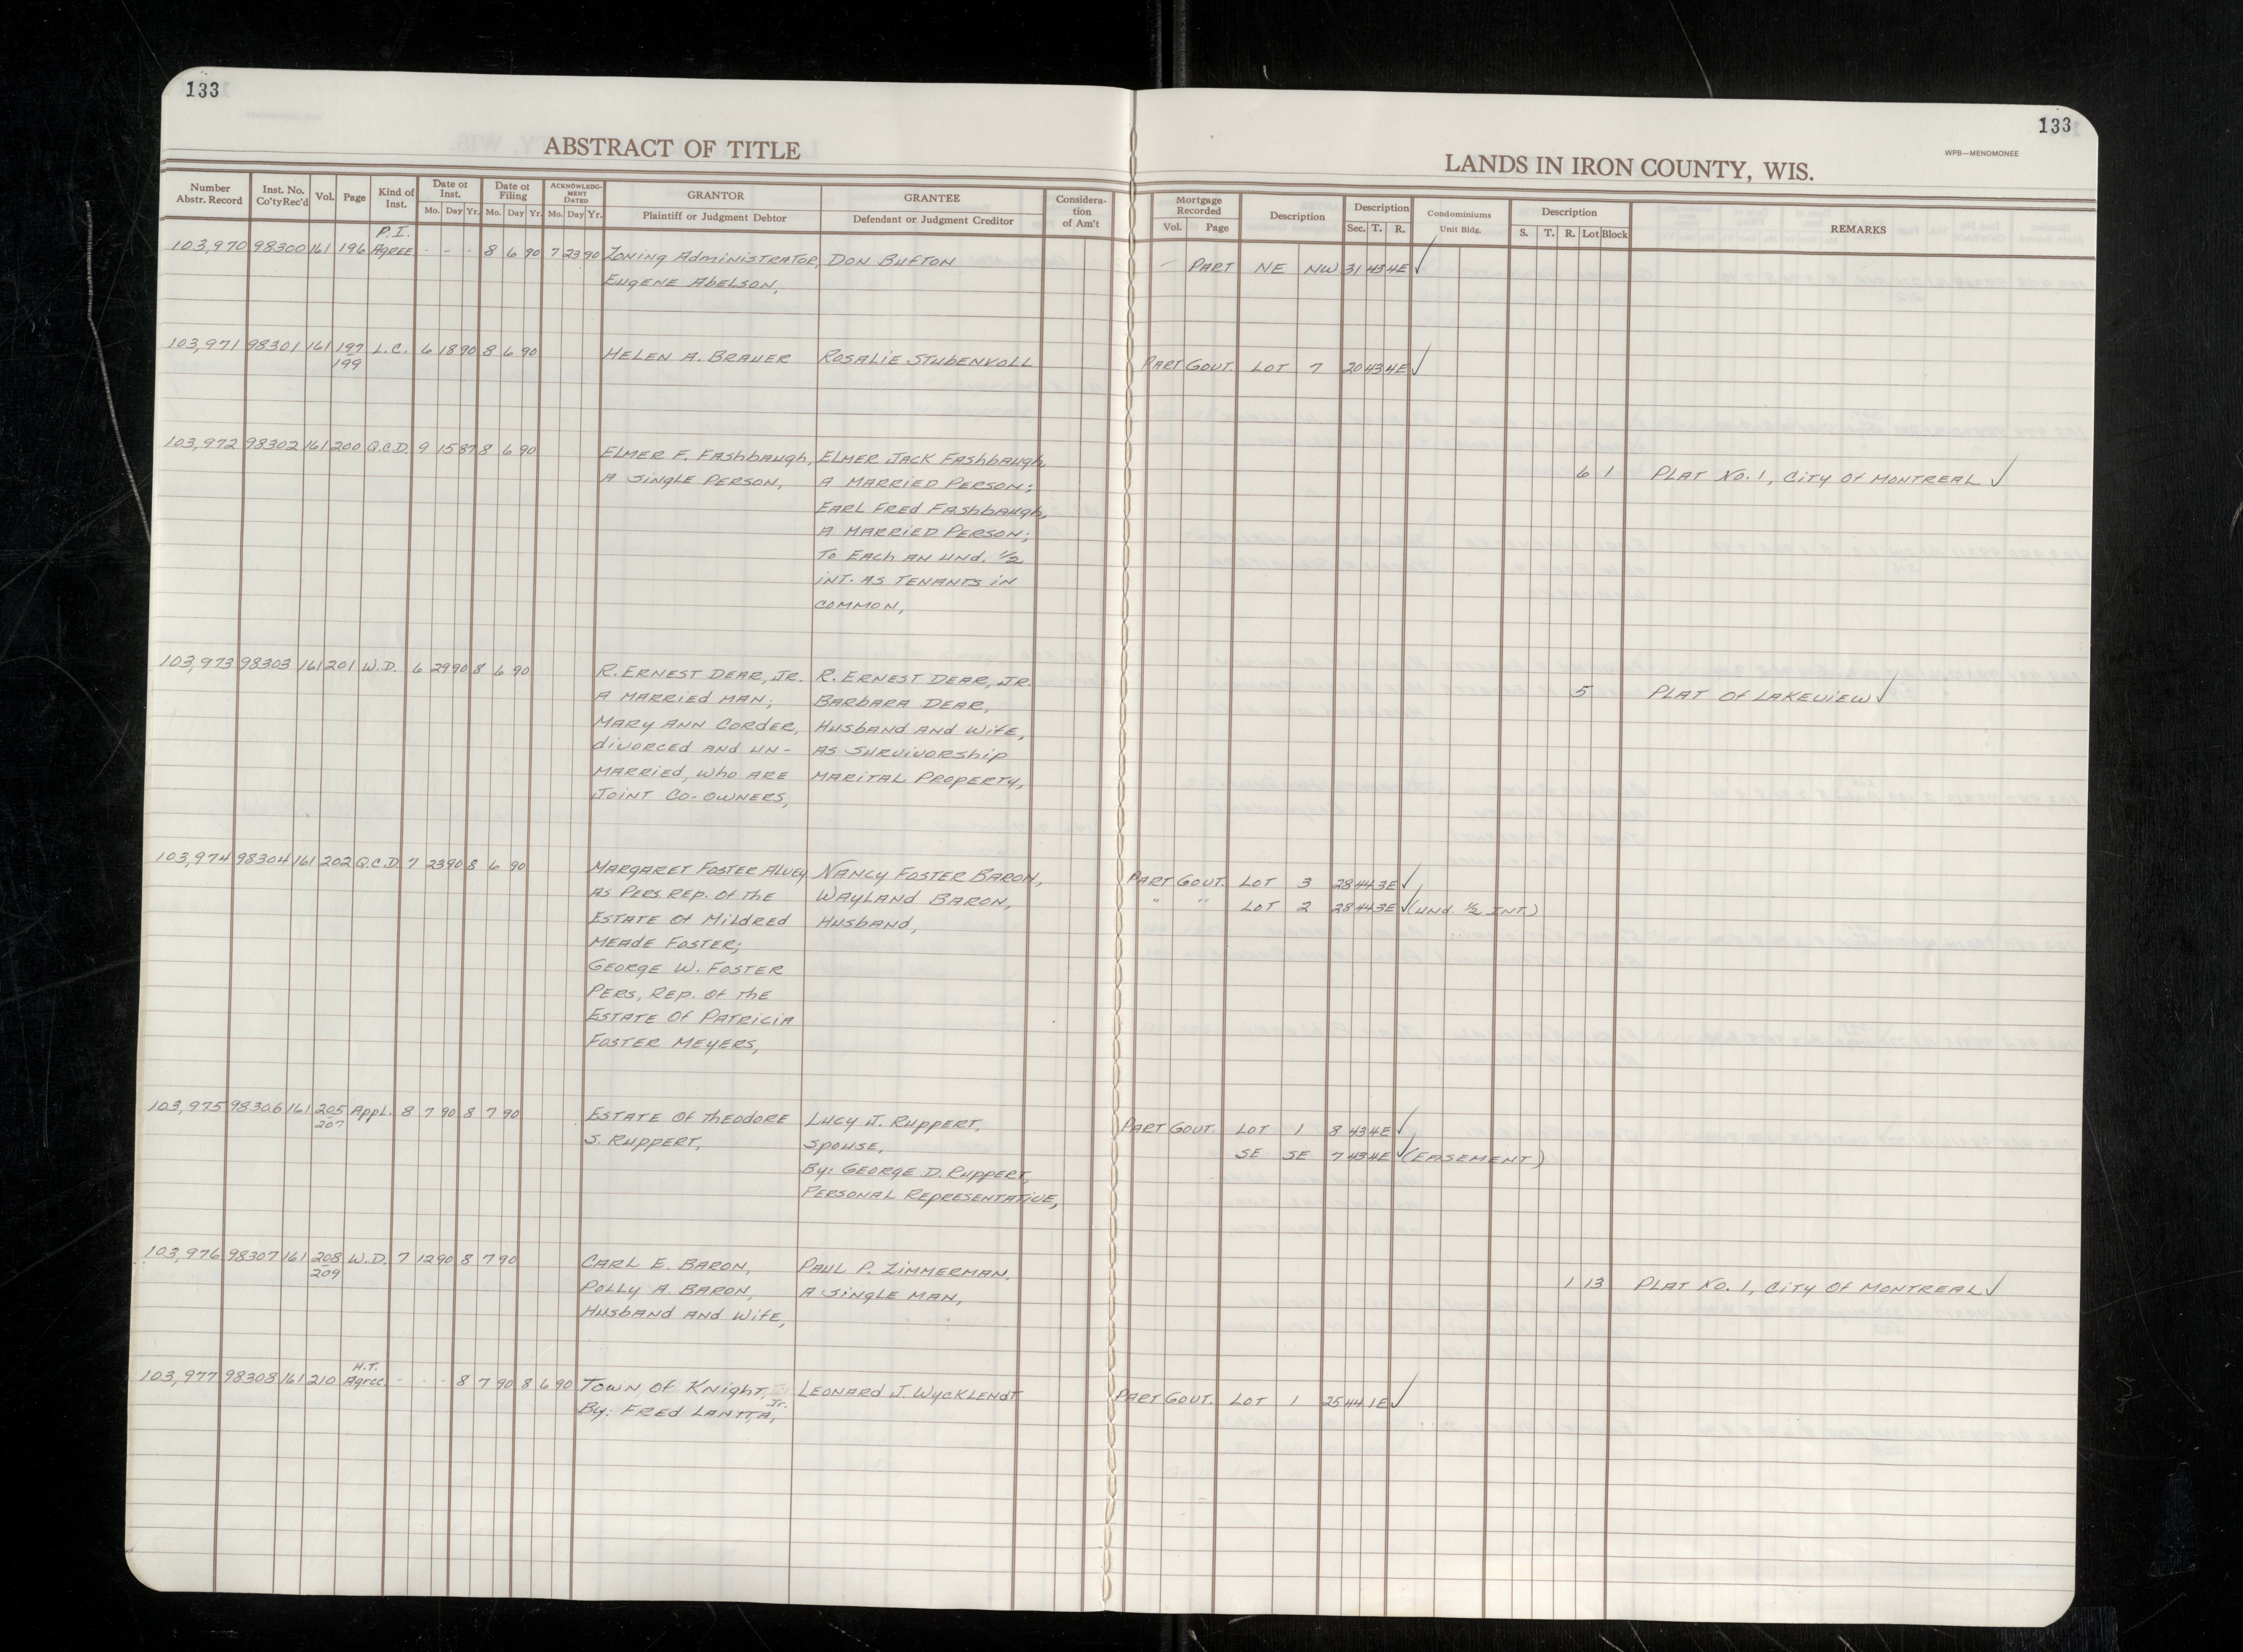 133
133
ABSTRACT OF TITLE
LANDS IN IRON COUNTY, WIS.
WPB—MENOMONEE
Number Abstr. Record | Inst. No. Co'ty Rec'd | Vol. | Page | Kind of Inst. | Date of Inst. Mo. Day Yr. | Date of Filing Mo. Day Yr. | ACKNOWLEDG-MENT DATED Mo. Day Yr. | GRANTOR Plaintiff or Judgment Debtor | GRANTEE Defendant or Judgment Creditor | Considera-tion of Am't | Mortgage Recorded Vol. Page | Description | Description Sec. T. R. | Condominiums Unit Bldg. | Description S. T. R. Lot Block | REMARKS
P.I.
103,970 98300 161 196 Agree - - - 8 6 90 7 23 90 Zoning Administrator, Don Bufton — Part NE NW 31 43 4E ✓
Eugene Abelson,
103,971 98301 161 197 L.C. 6 18 90 8 6 90 Helen A. Brauer Rosalie Stubenvoll Part Govt. Lot 7 20 43 4E ✓
199
103,972 98302 161 200 Q.C.D. 9 15 87 8 6 90 Elmer F. Fashbaugh, Elmer Jack Fashbaugh,
A Single Person, A Married Person; 6 1 Plat No. 1, City of Montreal ✓
Earl Fred Fashbaugh,
A Married Person;
To Each an und. 1/2
int. as tenants in
common,
103,973 98303 161 201 W.D. 6 29 90 8 6 90 R. Ernest Dear, Jr. R. Ernest Dear, Jr.
A Married Man; Barbara Dear, 5 Plat of Lakeview ✓
Mary Ann Corder, Husband and Wife,
divorced and un- as survivorship
married, who are marital property,
Joint Co-owners,
103,974 98304 161 202 Q.C.D. 7 23 90 8 6 90 Margaret Foster Alvey Nancy Foster Baron, Part Govt. Lot 3 28 44 3E ✓
as Pers. Rep. of the Wayland Baron, " " Lot 2 28 44 3E ✓ (und. 1/2 Int.)
Estate of Mildred Husband,
Meade Foster;
George W. Foster
Pers, Rep. of the
Estate of Patricia
Foster Meyers,
103,975 98306 161 205 Appl. 8 7 90 8 7 90 Estate of Theodore Lucy J. Ruppert, Part Govt. Lot 1 8 43 4E ✓
207 S. Ruppert, Spouse, SE SE 7 43 4E ✓ (Easement)
By: George D. Ruppert,
Personal Representative,
103,976 98307 161 208 W.D. 7 12 90 8 7 90 Carl E. Baron, Paul P. Zimmerman,
209 Polly A. Baron, A Single Man, 1 13 Plat No. 1, City of Montreal ✓
Husband and Wife,
H.T.
103,977 98308 161 210 Agree - - - 8 7 90 8 6 90 Town of Knight, Leonard J. Wycklendt Part Govt. Lot 1 25 44 1E ✓
By: Fred Lantta, Jr.